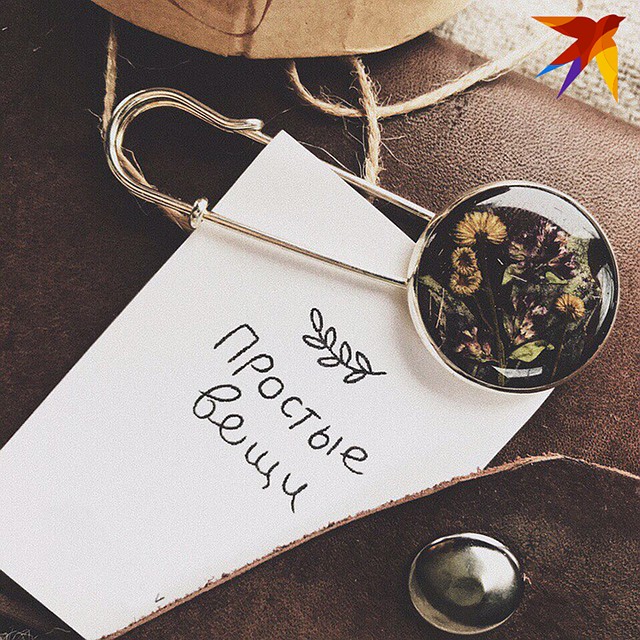 Простые
вещи